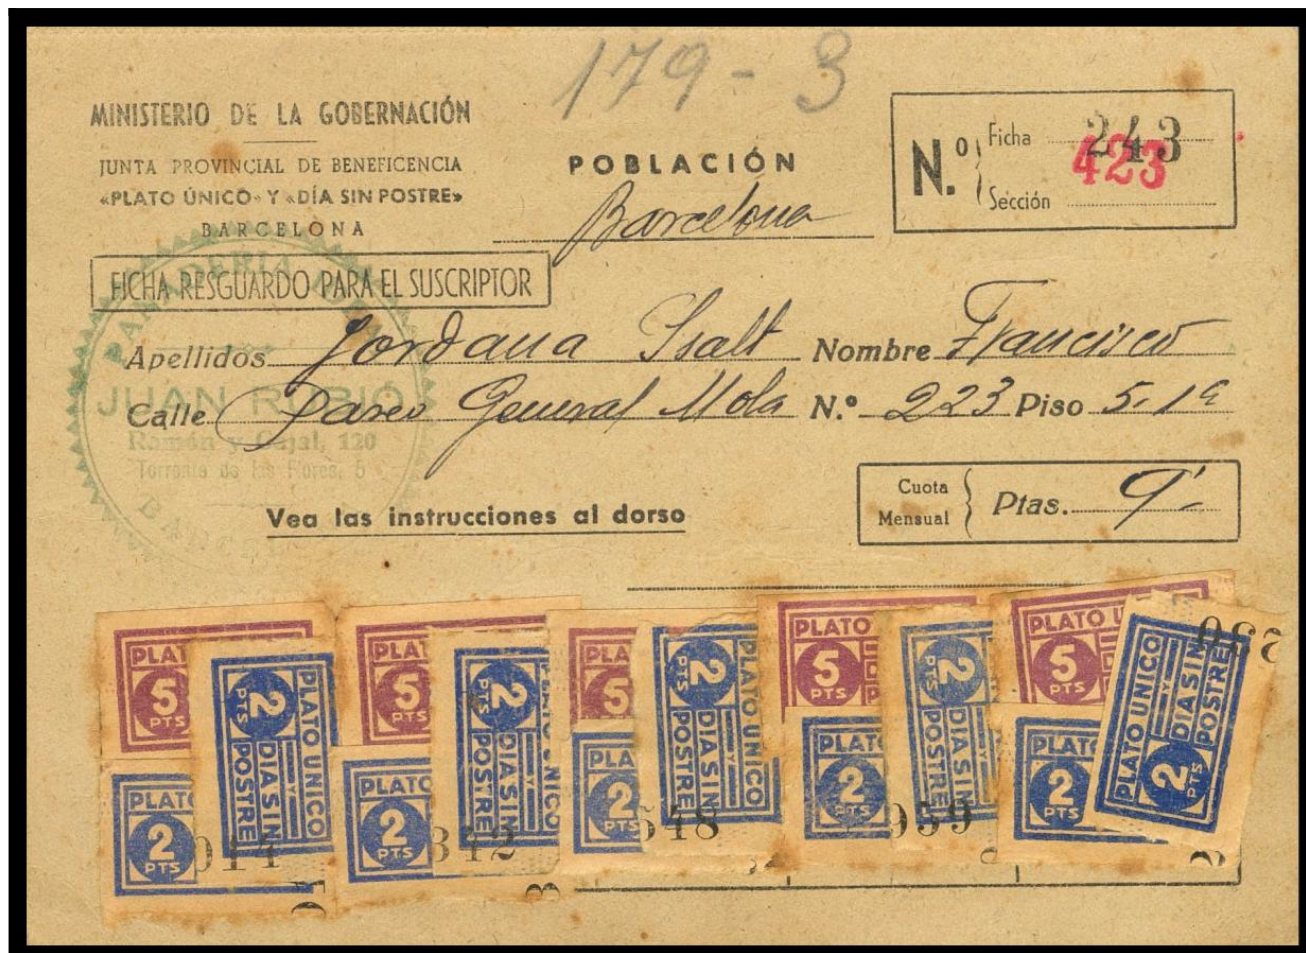 179-3
MINISTERIO DE LA GOBERNACIÓN
JUNTA PROVINCIAL DE BENEFICENCIA
«PLATO ÚNICO» Y «DÍA SIN POSTRE»
BARCELONA
POBLACIÓN
Barcelona
N.º
Ficha 243
423
Sección
FICHA RESGUARDO PARA EL SUSCRIPTOR
Apellidos Jordana Isalt Nombre Francisco
Calle Paseo General Mola N.º 223 Piso 5-1ª
JUAN RUBIÓ
Ramón y Cajal, 120
Torrente de las Flores, 5
Vea las instrucciones al dorso
Cuota Mensual Ptas. 9'-
PLAT 5 PTS
PLAT 5 PTS
PLA 5 PTS
PLATO 5 PTS
PLATO U 5 PTS
PLATO UNICO Y DIA SIN POSTRE 2 PTS
PLATO UNICO Y DIA SIN POSTRE 2 PTS
PLATO UNICO Y DIA SIN POSTRE 2 PTS
DIA SIN POSTRE 2 PTS
PLATO UNICO Y DIA SIN POSTRE 2 PTS
PLATO 2 PTS
PLATO 2 PTS
PLA 2 PTS
PLAT 2 PTS
PLATO 2 PTS
014
342
548
959